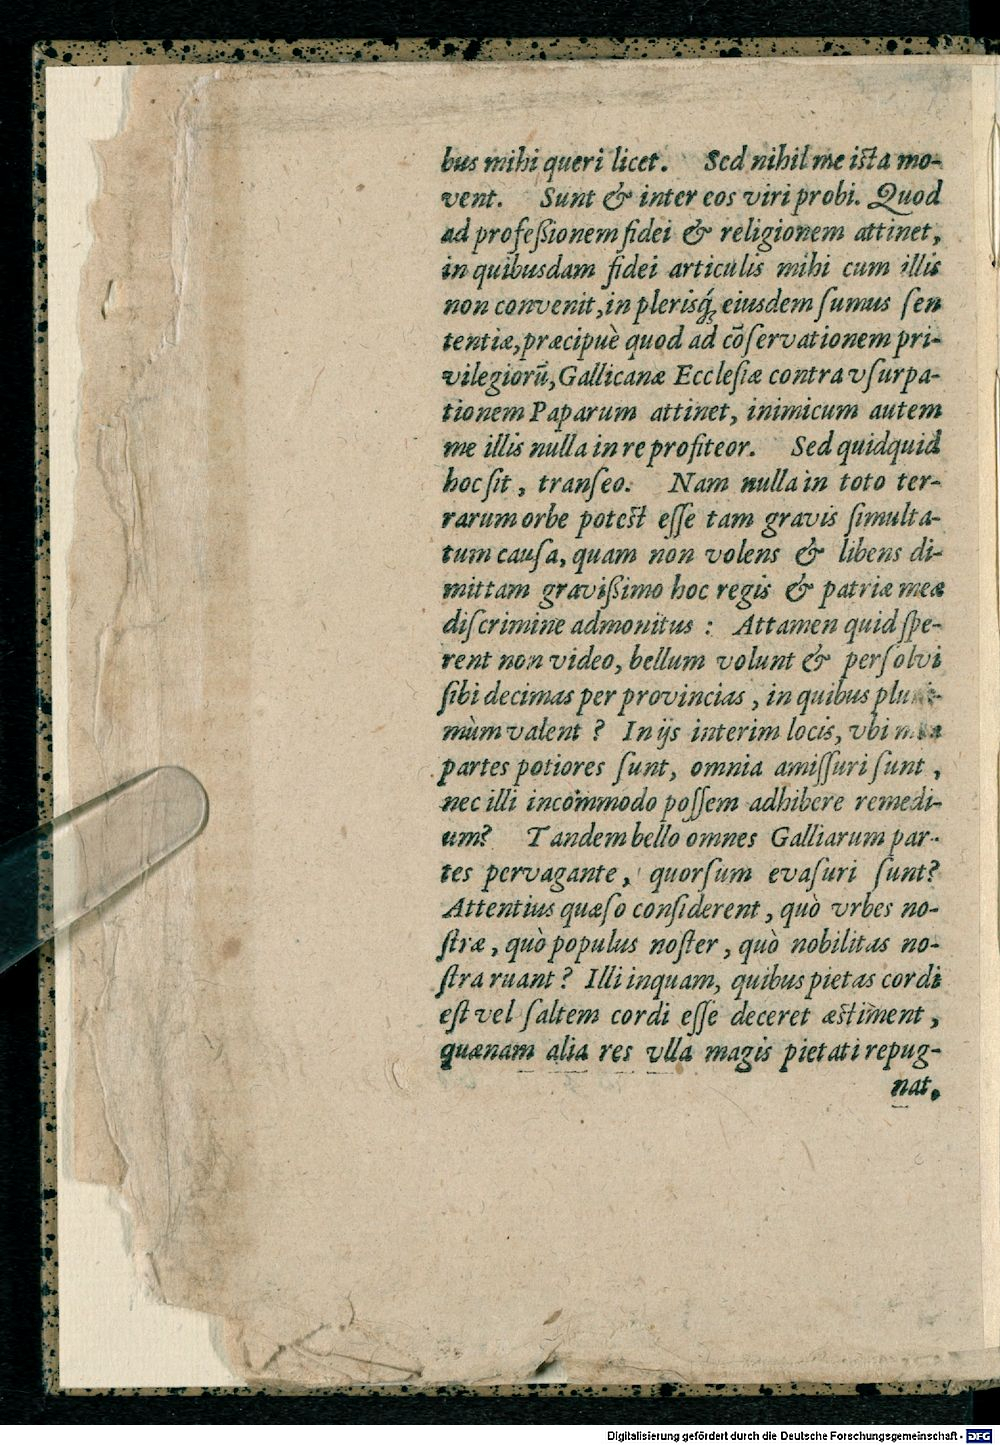 bus mihi queri licet. Sed nihil me ista mo-
vent. Sunt & inter eos viri probi. Quod
ad profeßionem fidei & religionem attinet,
in quibusdam fidei articulis mihi cum illis
non convenit, in plerisq́; eiusdem sumus sen
tentiæ, præcipuè quod ad cõservationem pri-
vilegiorũ, Gallicanæ Ecclesiæ contra vsurpa-
tionem Paparum attinet, inimicum autem
me illis nulla in re profiteor. Sed quidquid
hoc sit, transeo. Nam nulla in toto ter-
rarum orbe potest esse tam gravis simulta-
tum causa, quam non volens & libens di-
mittam gravißimo hoc regis & patriæ meæ
discrimine admonitus : Attamen quid spe-
rent non video, bellum volunt & persolvi
sibi decimas per provincias, in quibus pluri-
mùm valent ? In ijs interim locis, vbi
partes potiores sunt, omnia amissuri sunt,
nec illi incommodo possem adhibere remedi-
um? Tandem bello omnes Galliarum par-
tes pervagante, quorsum evasuri sunt?
Attentius quæso considerent, quò vrbes no-
stræ, quò populus noster, quò nobilitas no-
stra ruant ? Illi inquam, quibus pietas cordi
est vel saltem cordi esse deceret æstiment,
quænam alia res vlla magis pietati repug-
nat.
Digitalisierung gefördert durch die Deutsche Forschungsgemeinschaft - DFG